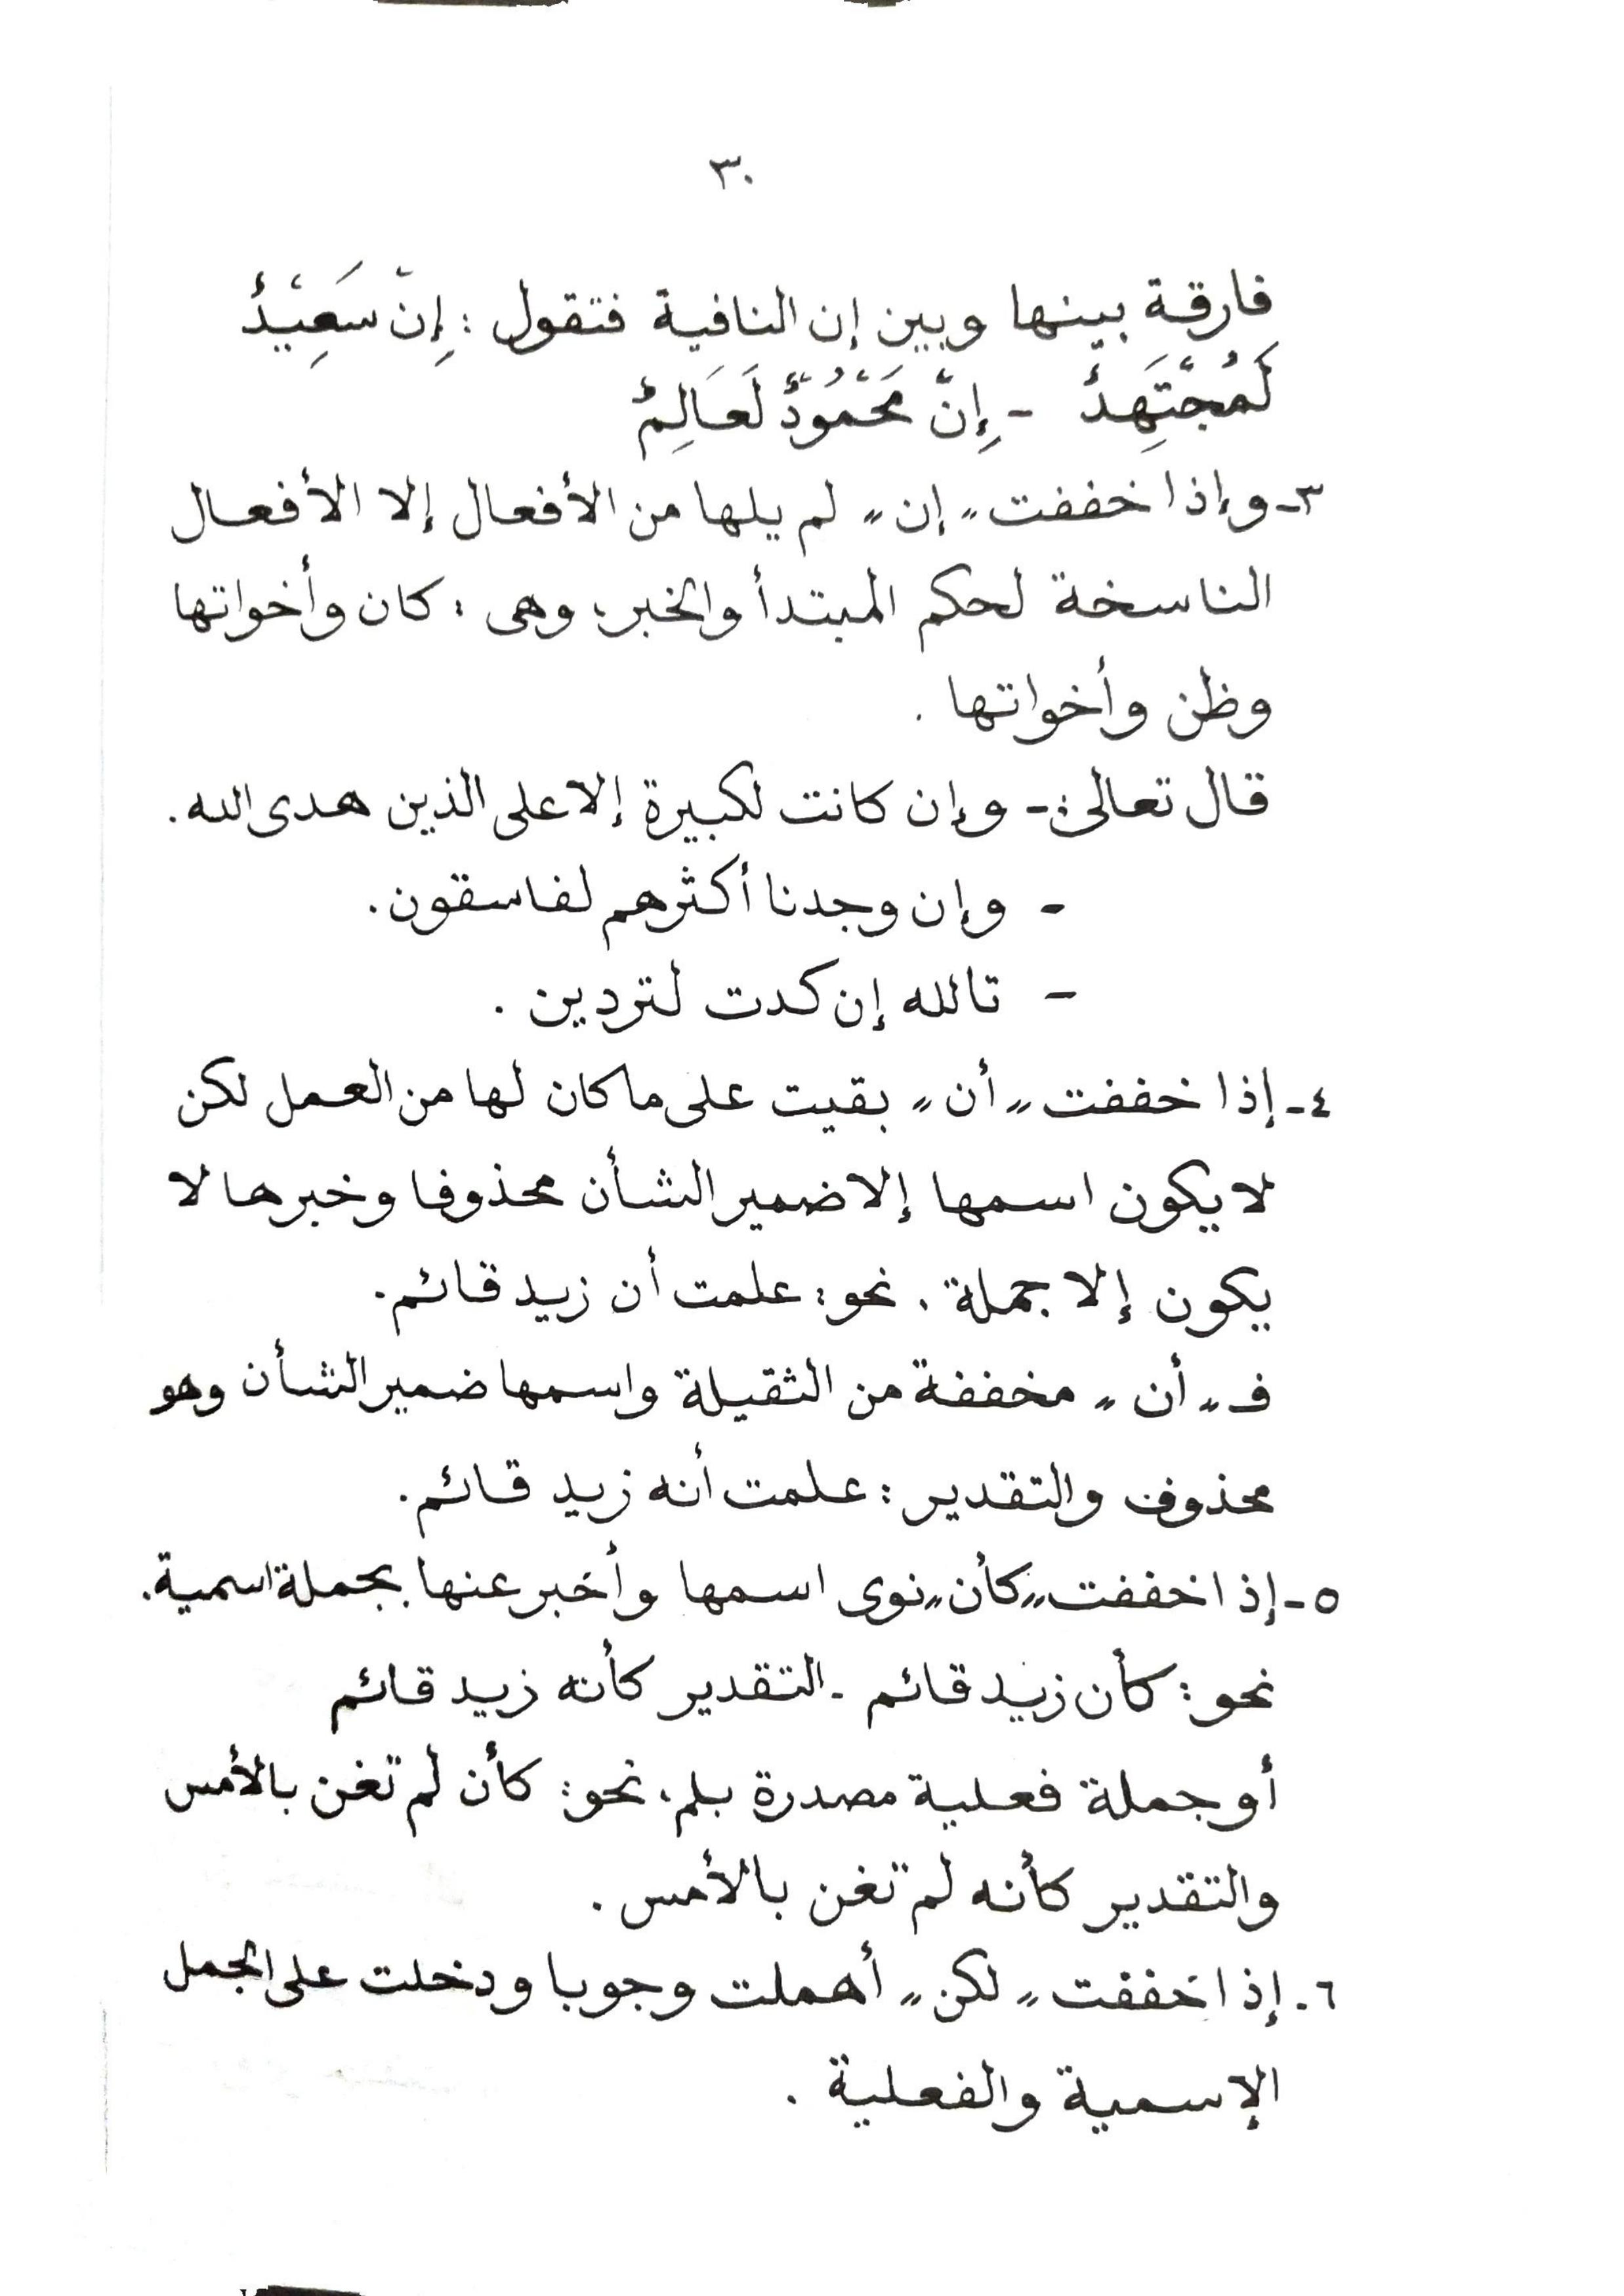 ٣٠
فارقة بينها وبين إن النافية فتقول : إِنْ سَعِيْدٌ
لَمُجْتَهِدٌ - إِنْ مَحْمُوْدٌ لَعَالِمٌ
٣- وإذا خففت „ إن „ لم يلها من الأفعال إلا الأفعال
الناسخة لحكم المبتدأ والخبر، وهى : كان وأخواتها
وظن وأخواتها .
قال تعالى :- وإن كانت لكبيرة إلا على الذين هدى الله.
- وإن وجدنا أكثرهم لفاسقون.
- تالله إن كدت لتردين .
٤- إذا خففت „ أن „ بقيت على ما كان لها من العمل لكن
لا يكون اسمها إلا ضمير الشأن محذوفا وخبرها لا
يكون إلا جملة . نحو : علمت أن زيد قائم.
ف „ أن „ مخففة من الثقيلة واسمها ضمير الشأن وهو
محذوف والتقدير : علمت أنه زيد قائم.
٥- إذا خففت „ كأن „ نوى اسمها وأخبر عنها بجملة اسمية.
نحو : كأن زيد قائم - التقدير كأنه زيد قائم
أو جملة فعلية مصدرة بلم، نحو: كأن لم تغن بالأمس
والتقدير كأنه لم تغن بالأمس .
٦- إذا خففت „ لكن „ أهملت وجوبا ودخلت على الجمل
الإسمية والفعلية .